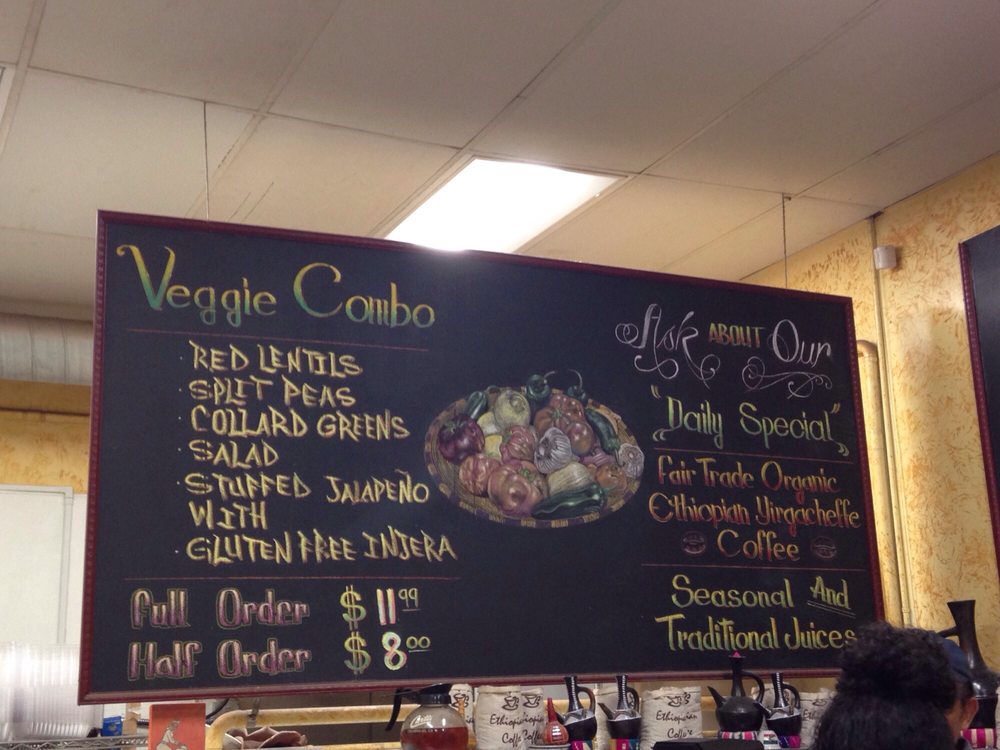 Veggie Combo
· RED LENTILS
· SPLIT PEAS
· COLLARD GREENS
· SALAD
· STUFFED JALAPEÑO
WITH
· GLUTEN FREE INJERA
Full Order $11.99
Half Order $8.00
Ask ABOUT Our
"Daily Special"
Fair Trade Organic
Ethiopian Yirgacheffe
Coffee
Seasonal And
Traditional Juices
Ethiopian
Coffee
Ethiopian
Coffee